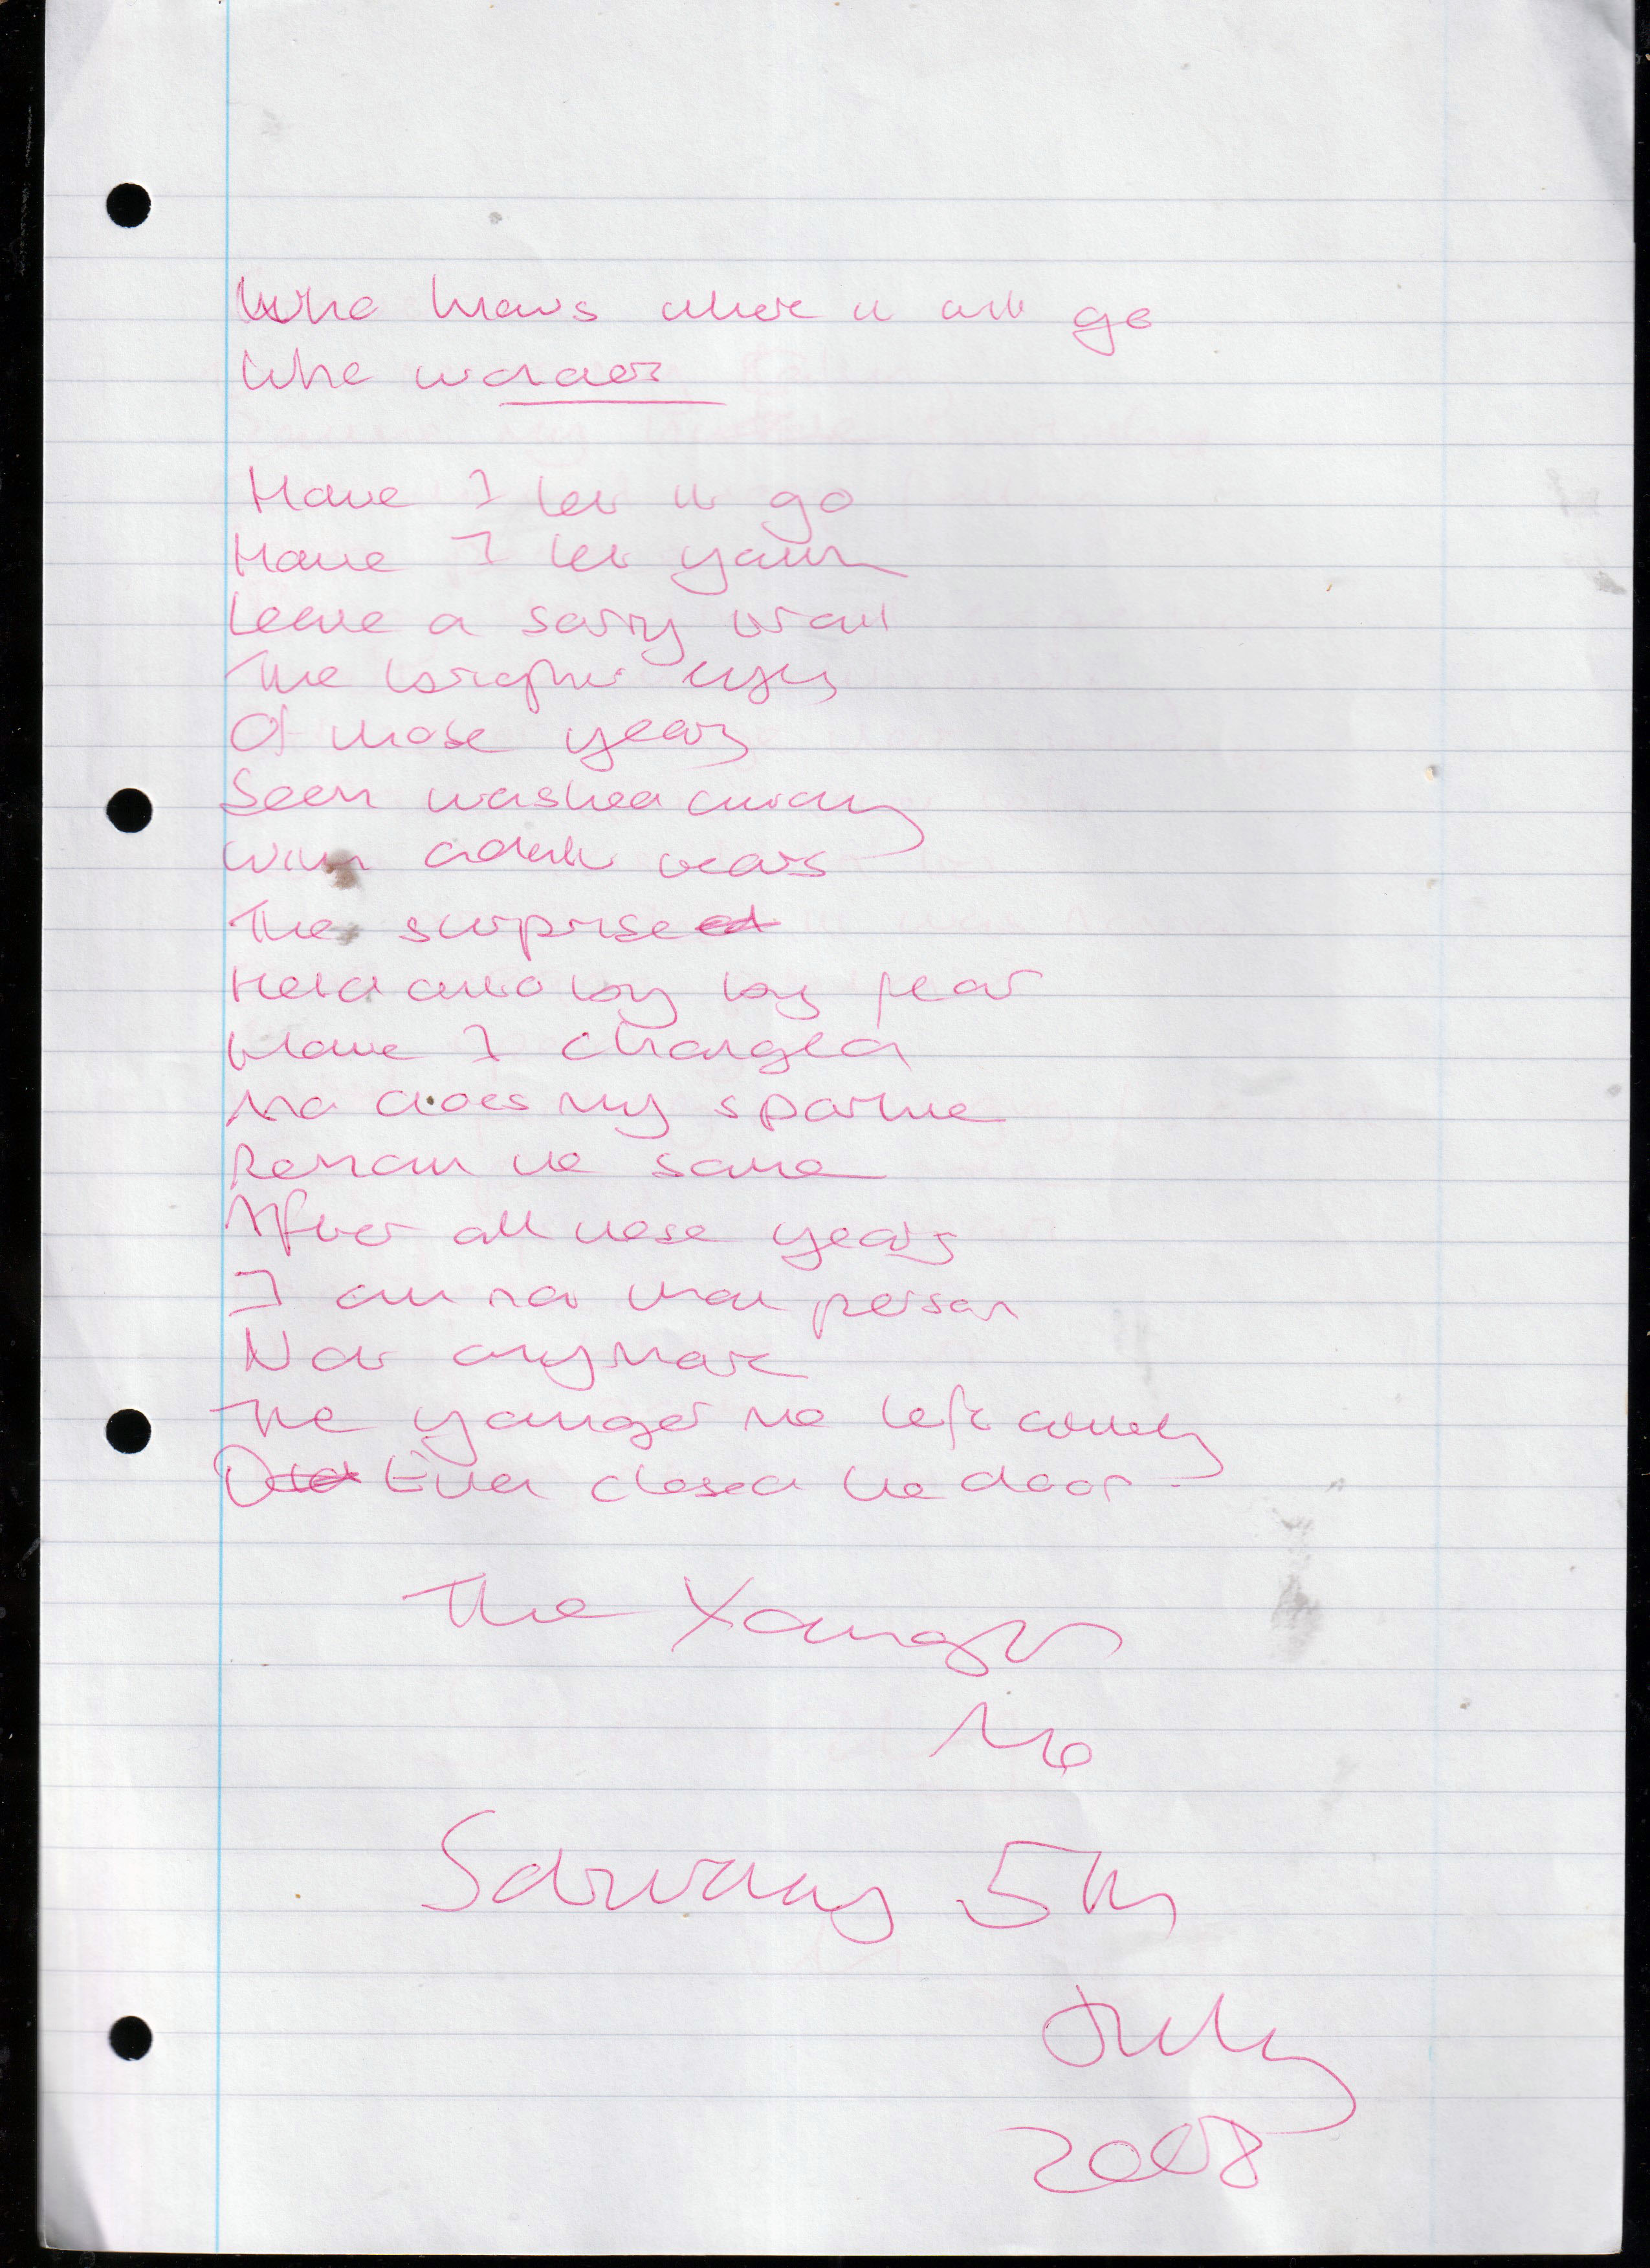 Who knows where it will go
Who wonders
Have I let it go
Have I let youth
Leave a sorry trail
The brighter eyes
Of those years
Seen washed away
With adult tears
The surprise
Held by by fear
Have I changed
No does my sparkle
Remain the same
After all these years
I am not that person
Not anymore
The younger me left
Ever closed the door
The Younger
Me
Saturday 5th
July
2008